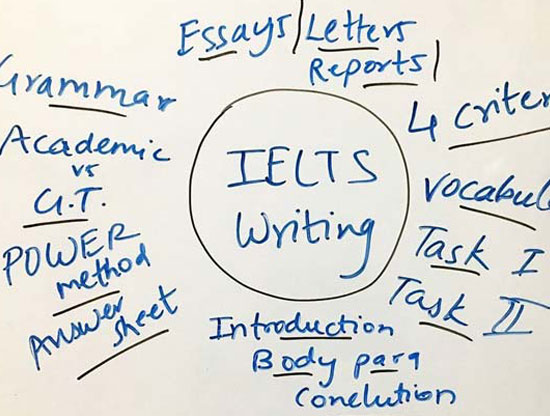 Essays/Letters
Reports/
Grammar
Academic
vs
G.T.
POWER
method
Answer
sheet
IELTS
Writing
4 Criter
Vocabul
Task I
Task II
Introduction
Body para
Conclution